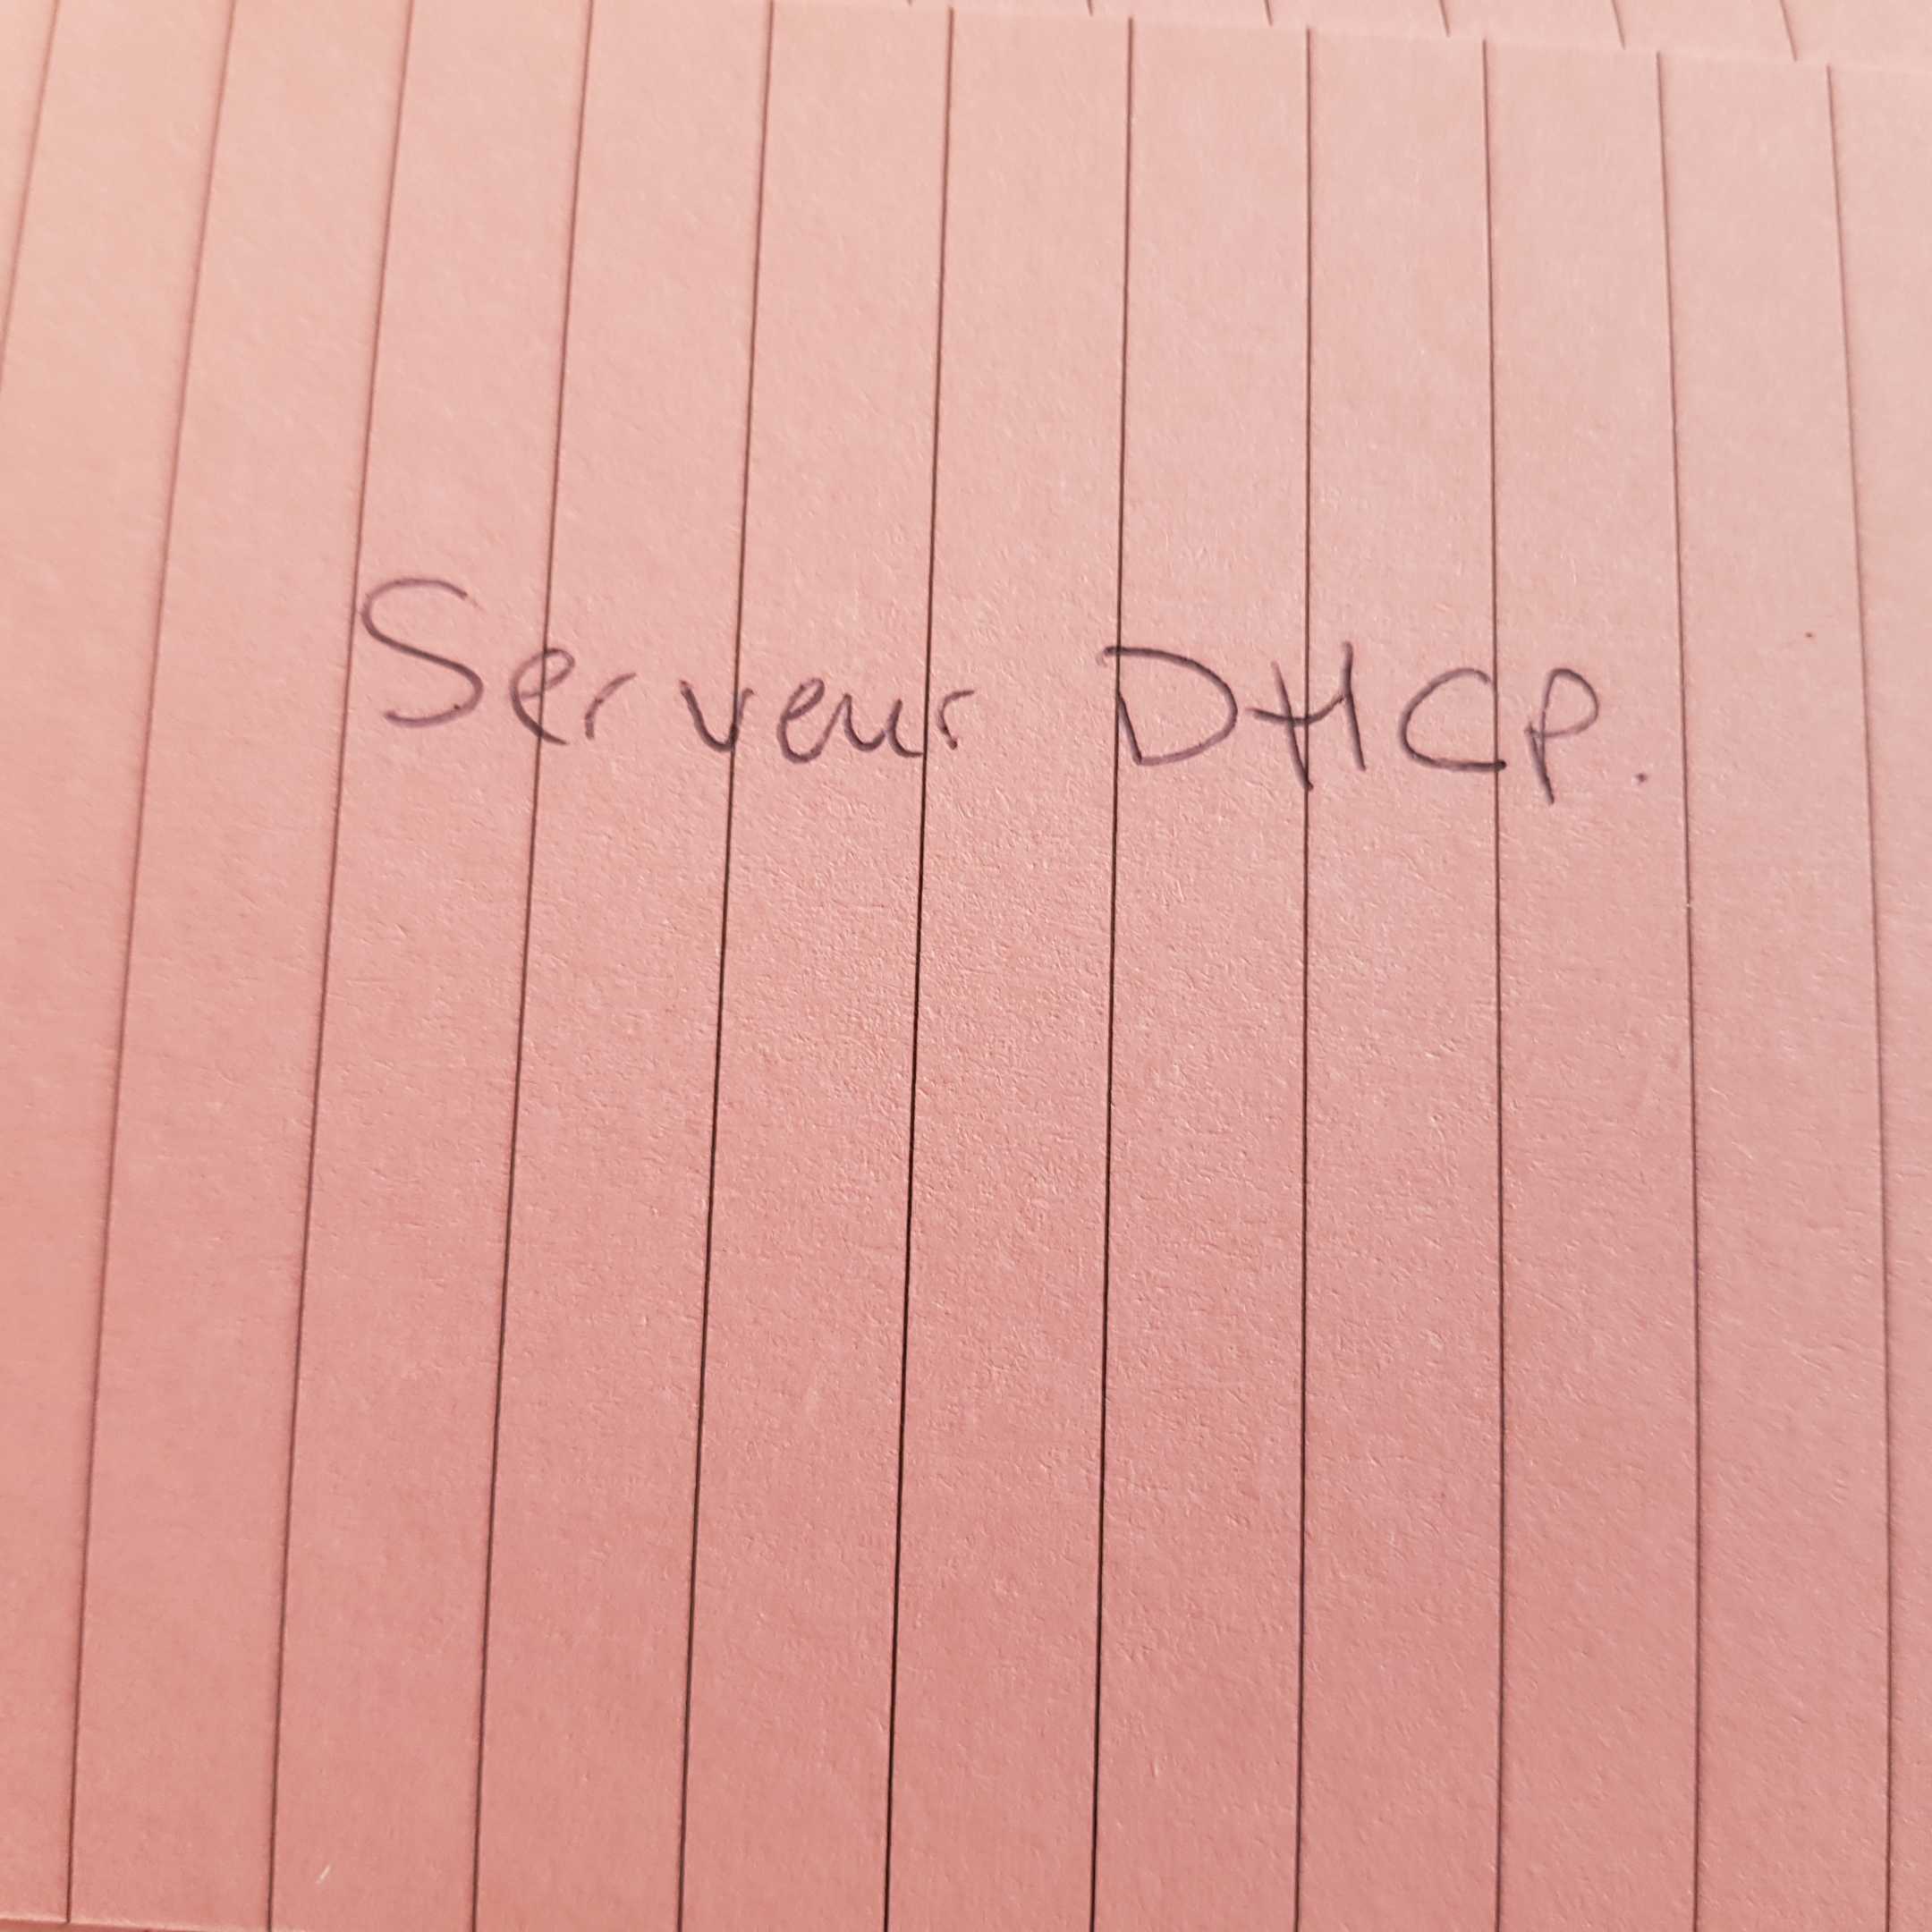 Serveur DHCP.